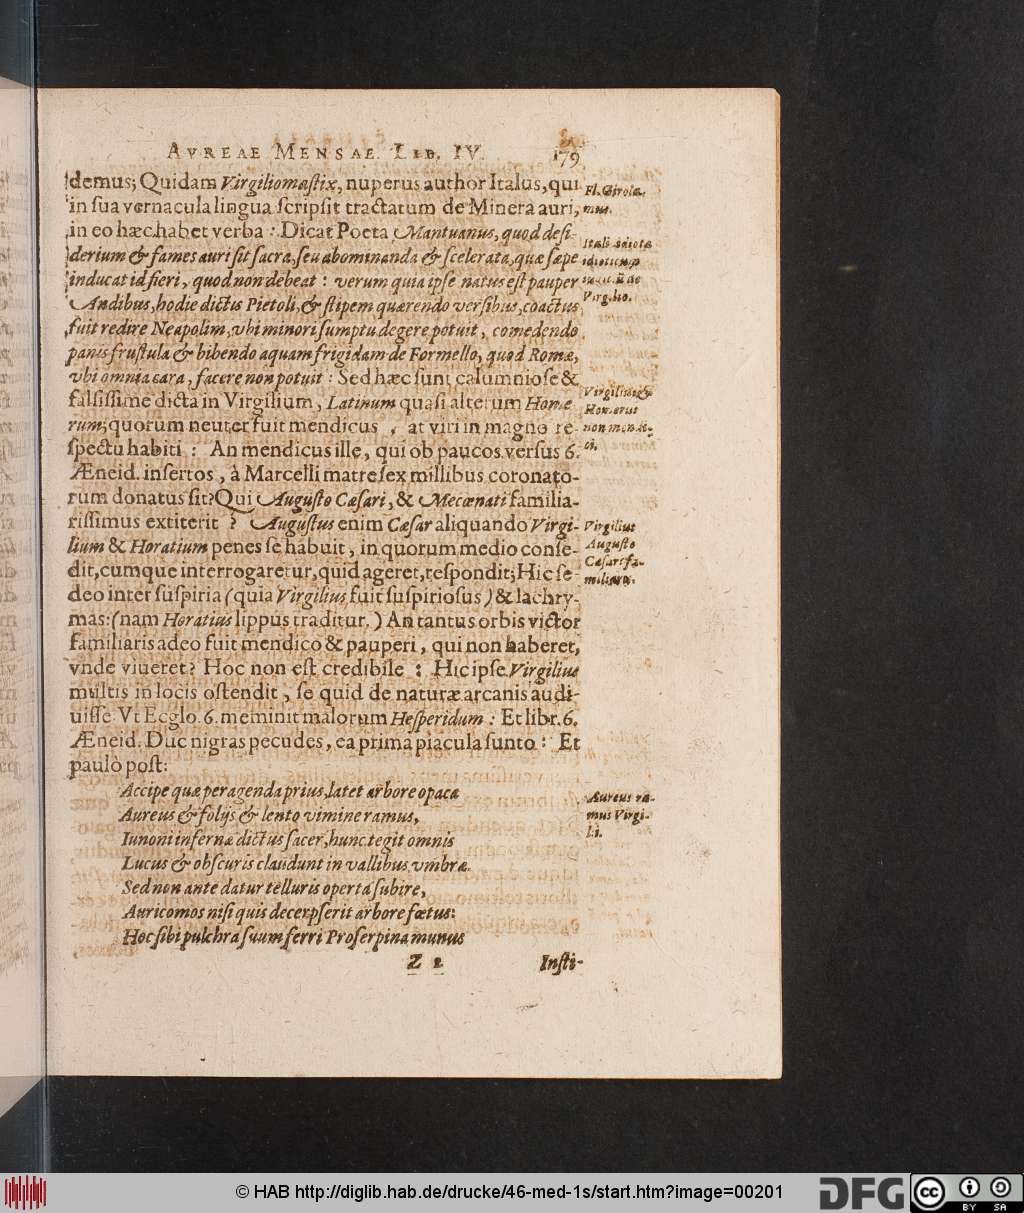 AVREAE MENSAE. LIB. IV. 179
demus; Quidam Virgiliomaſtix, nuperus author Italus, qui
in ſua vernacula lingua ſcripſit tractatum de Minera auri,
in eo hæc habet verba : Dicat Poeta Mantuanus, quod deſi-
derium & fames auri ſit ſacra, ſeu abominanda & ſcelerata, quæ ſæpe
inducat id fieri, quod non debeat : verum quia ipſe natus eſt pauper
Andibus, hodie dictis Pietoli, & ſtipem quærendo verſibus, coactus
fuit redire Neapolim, vbi minori ſumptu degere potuit, comedendo
panis fruſtula & bibendo aquam frigidam de Formello, quod Romæ,
vbi omnia cara, facere non potuit : Sed hæc ſunt calumnioſe &
falſiſſime dicta in Virgilium, Latinum quaſi alterum Home
rum; quorum neuter fuit mendicus , at viri in magno re-
ſpectu habiti : An mendicus ille, qui ob paucos verſus 6.
Æneid. inſertos, à Marcelli matre ſex millibus coronato-
rum donatus ſit? Qui Auguſto Cæſari, & Mecœnati familia-
riſſimus extiterit ? Auguſtus enim Cæſar aliquando Virgi-
lium & Horatium penes ſe habuit, in quorum medio conſe-
dit, cumque interrogaretur, quid ageret, reſpondit; Hic ſe-
deo inter ſuſpiria (quia Virgilius fuit ſuſpirioſus) & lachry-
mas: (nam Horatius lippus traditur.) An tantus orbis victor
familiaris adeo fuit mendico & pauperi, qui non haberet,
vnde viueret? Hoc non eſt credibile : Hic ipſe Virgilius
multis in locis oſtendit, ſe quid de naturæ arcanis audi-
uiſſe Vt Ecglo. 6. meminit malorum Heſperidum : Et libr. 6.
Æneid. Duc nigras pecudes, ea prima piacula ſunto : Et
paulò poſt:
Accipe quæ peragenda prius, latet arbore opaca
Aureus & folijs & lento vimine ramus,
Iunoni infernæ dictus ſacer, hunc tegit omnis
Lucus & obſcuris claudunt in vallibus vmbræ.
Sed non ante datur telluris operta ſubire,
Auricomos niſi quis decerpſerit arbore fœtus:
Hoc ſibi pulchra ſuum ferri Proſerpina munus
Z 2 Inſti-
Fl. Girola-
mus.
Itali idiotæ
idioticum
iudiciũ de
Virgilio.
Virgilius &
Homerus
non mendi-
ci.
Virgilius
Auguſto
Cæſari fa-
miliaris.
Aureus ra-
mus Virgi-
lii.
© HAB http://diglib.hab.de/drucke/46-med-1s/start.htm?image=00201
DFG
cc BY SA